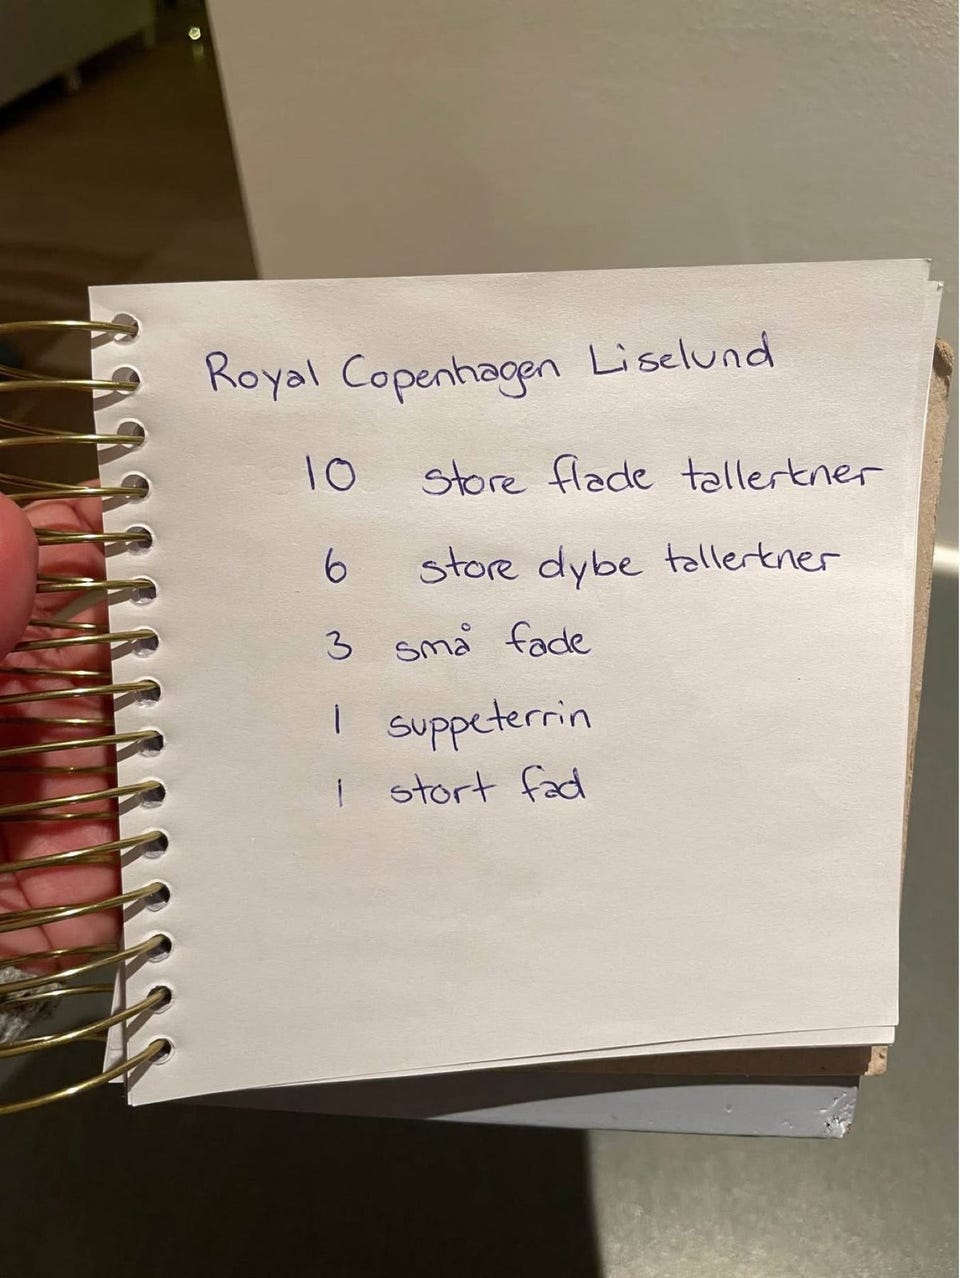 Royal Copenhagen Liselund
10 store flade tallerkner
6 store dybe tallerkner
3 små fade
1 suppeterrin
1 stort fad